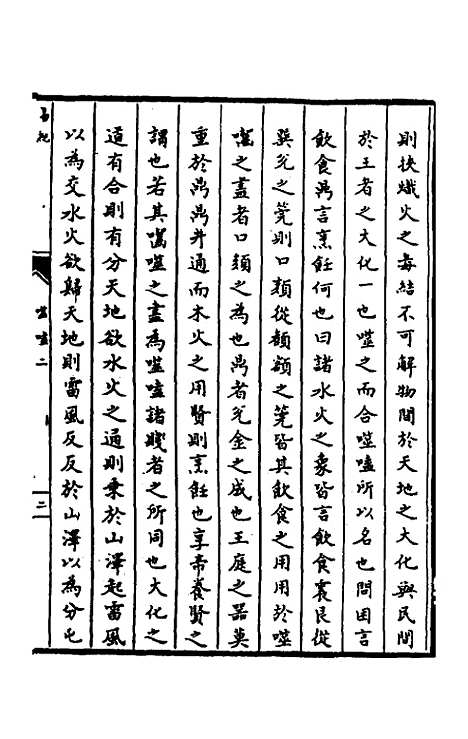 則挾熾火之毒結不可解物間於天地之大化與民間
於王者之大化一也噬之而合噬嗑所以名也問困言
飲食鼎言烹飪何也曰諸水火之象皆言飲食震艮從
巽兌之筦則口類從額頟之筦皆其飲食之用用於噬
嗑之盡者口頰之為也鼎者兌金之成也王庭之器莫
重於鼎鼎井通而木火之用賢則烹飪也享帝養賢之
謂也若其噬之盡為噬嗑諸賤者之所同也大化之
道有合則有分天地欲水火之通則乗於山澤起雷風
以為交水火欲歸天地則雷風反反於山澤以為分屯
噬嗑二
二